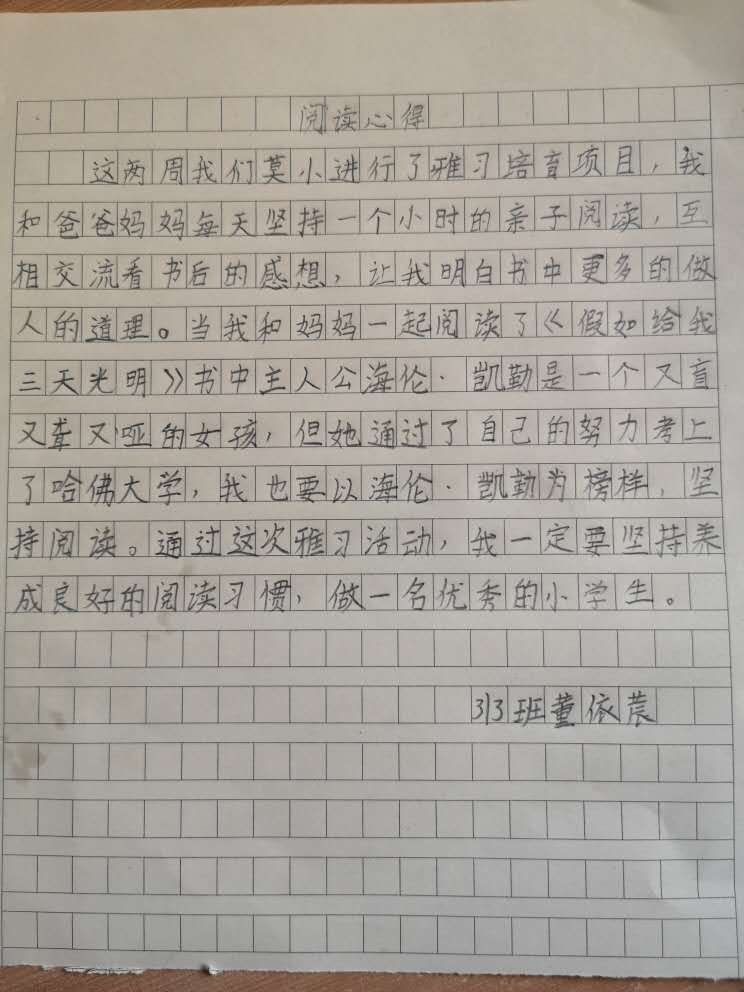 阅读心得
这两周我们莫小进行了雅习培育项目，我
和爸爸妈妈每天坚持一个小时的亲子阅读，互
相交流看书后的感想，让我明白书中更多的做
人的道理。当我和妈妈一起阅读了《假如给我
三天光明》书中主人公海伦·凯勤是一个又盲
又聋又哑的女孩，但她通过了自己的努力考上
了哈佛大学，我也要以海伦·凯勤为榜样，坚
持阅读。通过这次雅习活动，我一定要坚持养
成良好的阅读习惯，做一名优秀的小学生。
313班董依苠